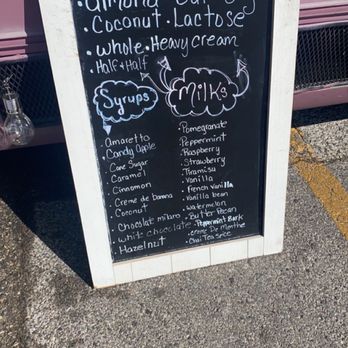 Almond
Coconut · Lactose
· Whole · Heavy cream
· Half + Half
Syrups
Milks
· Amaretto
· Candy Apple
· Cane Sugar
· Caramel
· Cinnamon
· Creme de banana
· Coconut
· Chocolate milano
· White chocolate
· Hazelnut
· Pomegranate
· Peppermint
· Raspberry
· Strawberry
· Tiramisu
· Vanilla
· French Vanilla
· Vanilla bean
· watermelon
· Butter Pecan
· Peppermint Bark
· creme De Menthe
· Chai Tea Spice